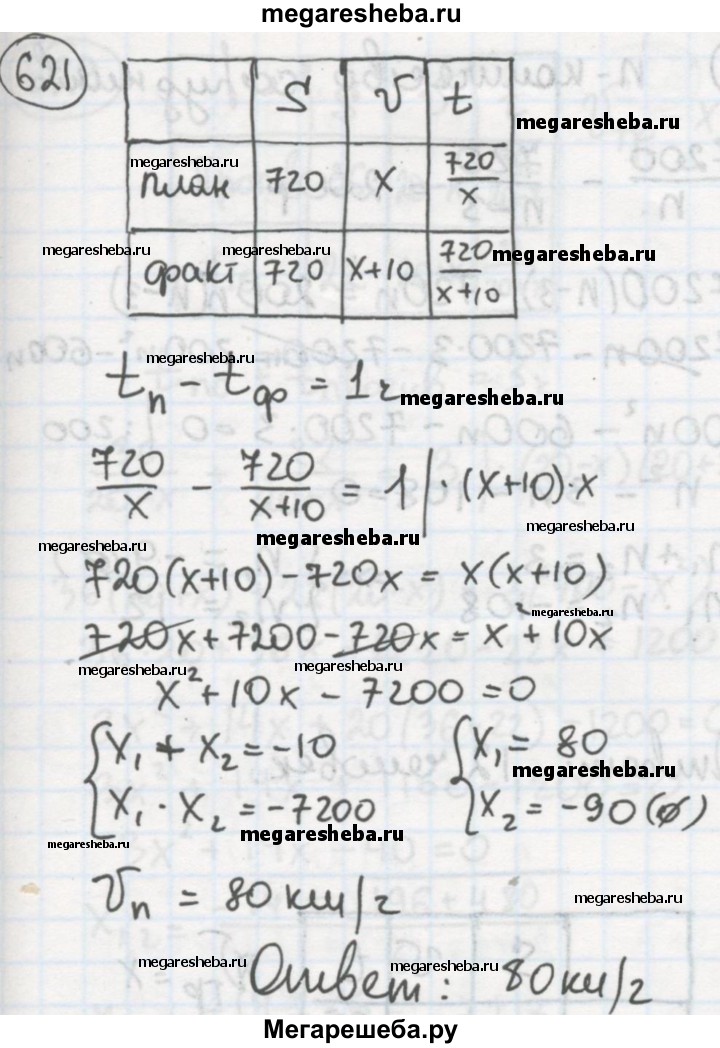 megaresheba.ru
621
S V t
megaresheba.ru
megaresheba.ru
план 720 x 720/x
megaresheba.ru megaresheba.ru megaresheba.ru
факт 720 x+10 720/x+10
megaresheba.ru
tп - tф = 1ч
megaresheba.ru
720/x - 720/x+10 = 1 | ·(x+10)·x
megaresheba.ru
megaresheba.ru
megaresheba.ru
720(x+10)-720x = x(x+10)
megaresheba.ru
720x+7200-720x = x²+10x
megaresheba.ru megaresheba.ru
x²+10x - 7200 = 0
{x₁ + x₂ = -10 {x₁ = 80
megaresheba.ru
{x₁ · x₂ = -7200 {x₂ = -90 (∅)
megaresheba.ru
megaresheba.ru
Vп = 80 км/ч
megaresheba.ru
megaresheba.ru megaresheba.ru
Ответ: 80 км/ч
Мегарешеба.ру